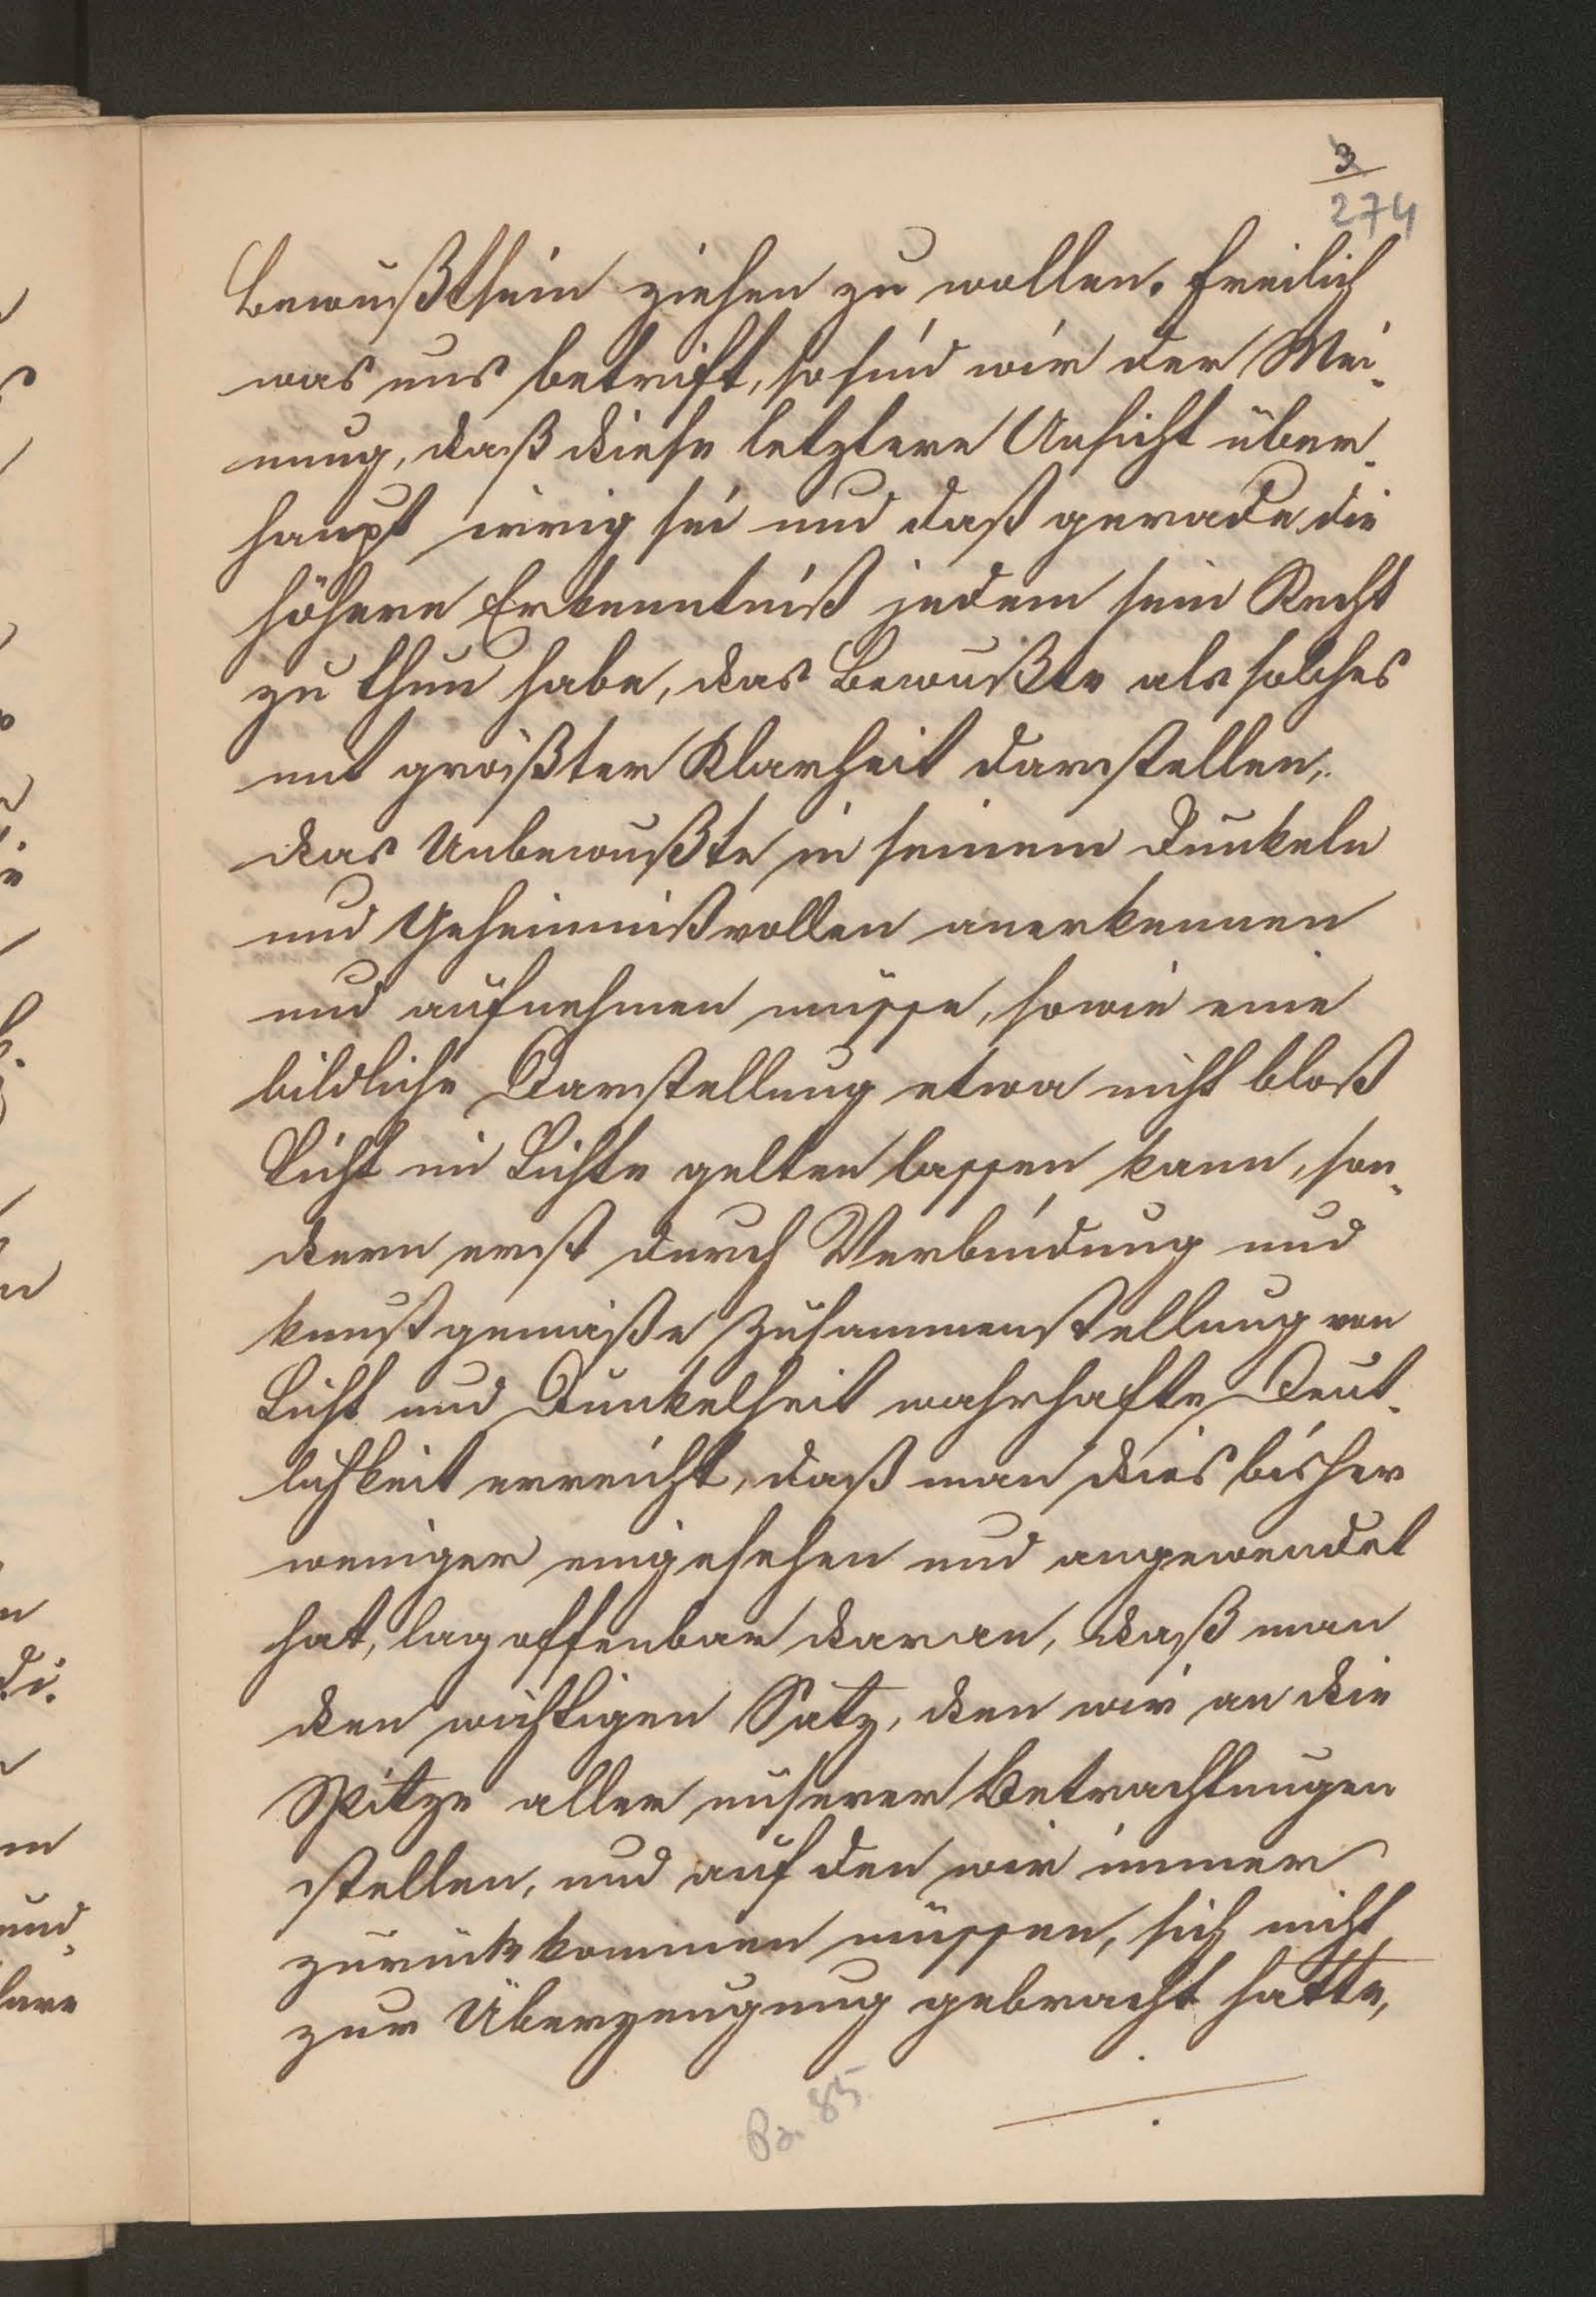 3
274
Bewußtsein ziehen zu wollen. Freilich
was uns betrift, so sind wir der Mei-
nung, daß diese letztere Ansicht über-
haupt irrig sei und daß gerade die
höhere Erkenntniß jedem sein Recht
zu thun habe, das Bewußte als solches
mit größter Klarheit darstellen,
das Unbewußte in seinem Dunkeln
und Geheimnißvollen anerkennen
und aufnehmen müsse, sowie eine
bildliche Darstellung etwa nicht bloß
Licht im Lichte gelten lassen kann, son-
dern erst durch Verbindung und
kunstgemäße Zusammenstellung von
Licht und Dunkelheit wahrhafte Deut-
lichkeit erreicht, daß man dies bisher
weniger eingesehen und angewendet
hat, lag offenbar daran, daß man
den wichtigen Satz, den wir an die
Spitze aller unserer Betrachtungen
stellen, und auf den wir immer
zurückkommen müssen, sich nicht
zur Überzeugung gebracht hatte,